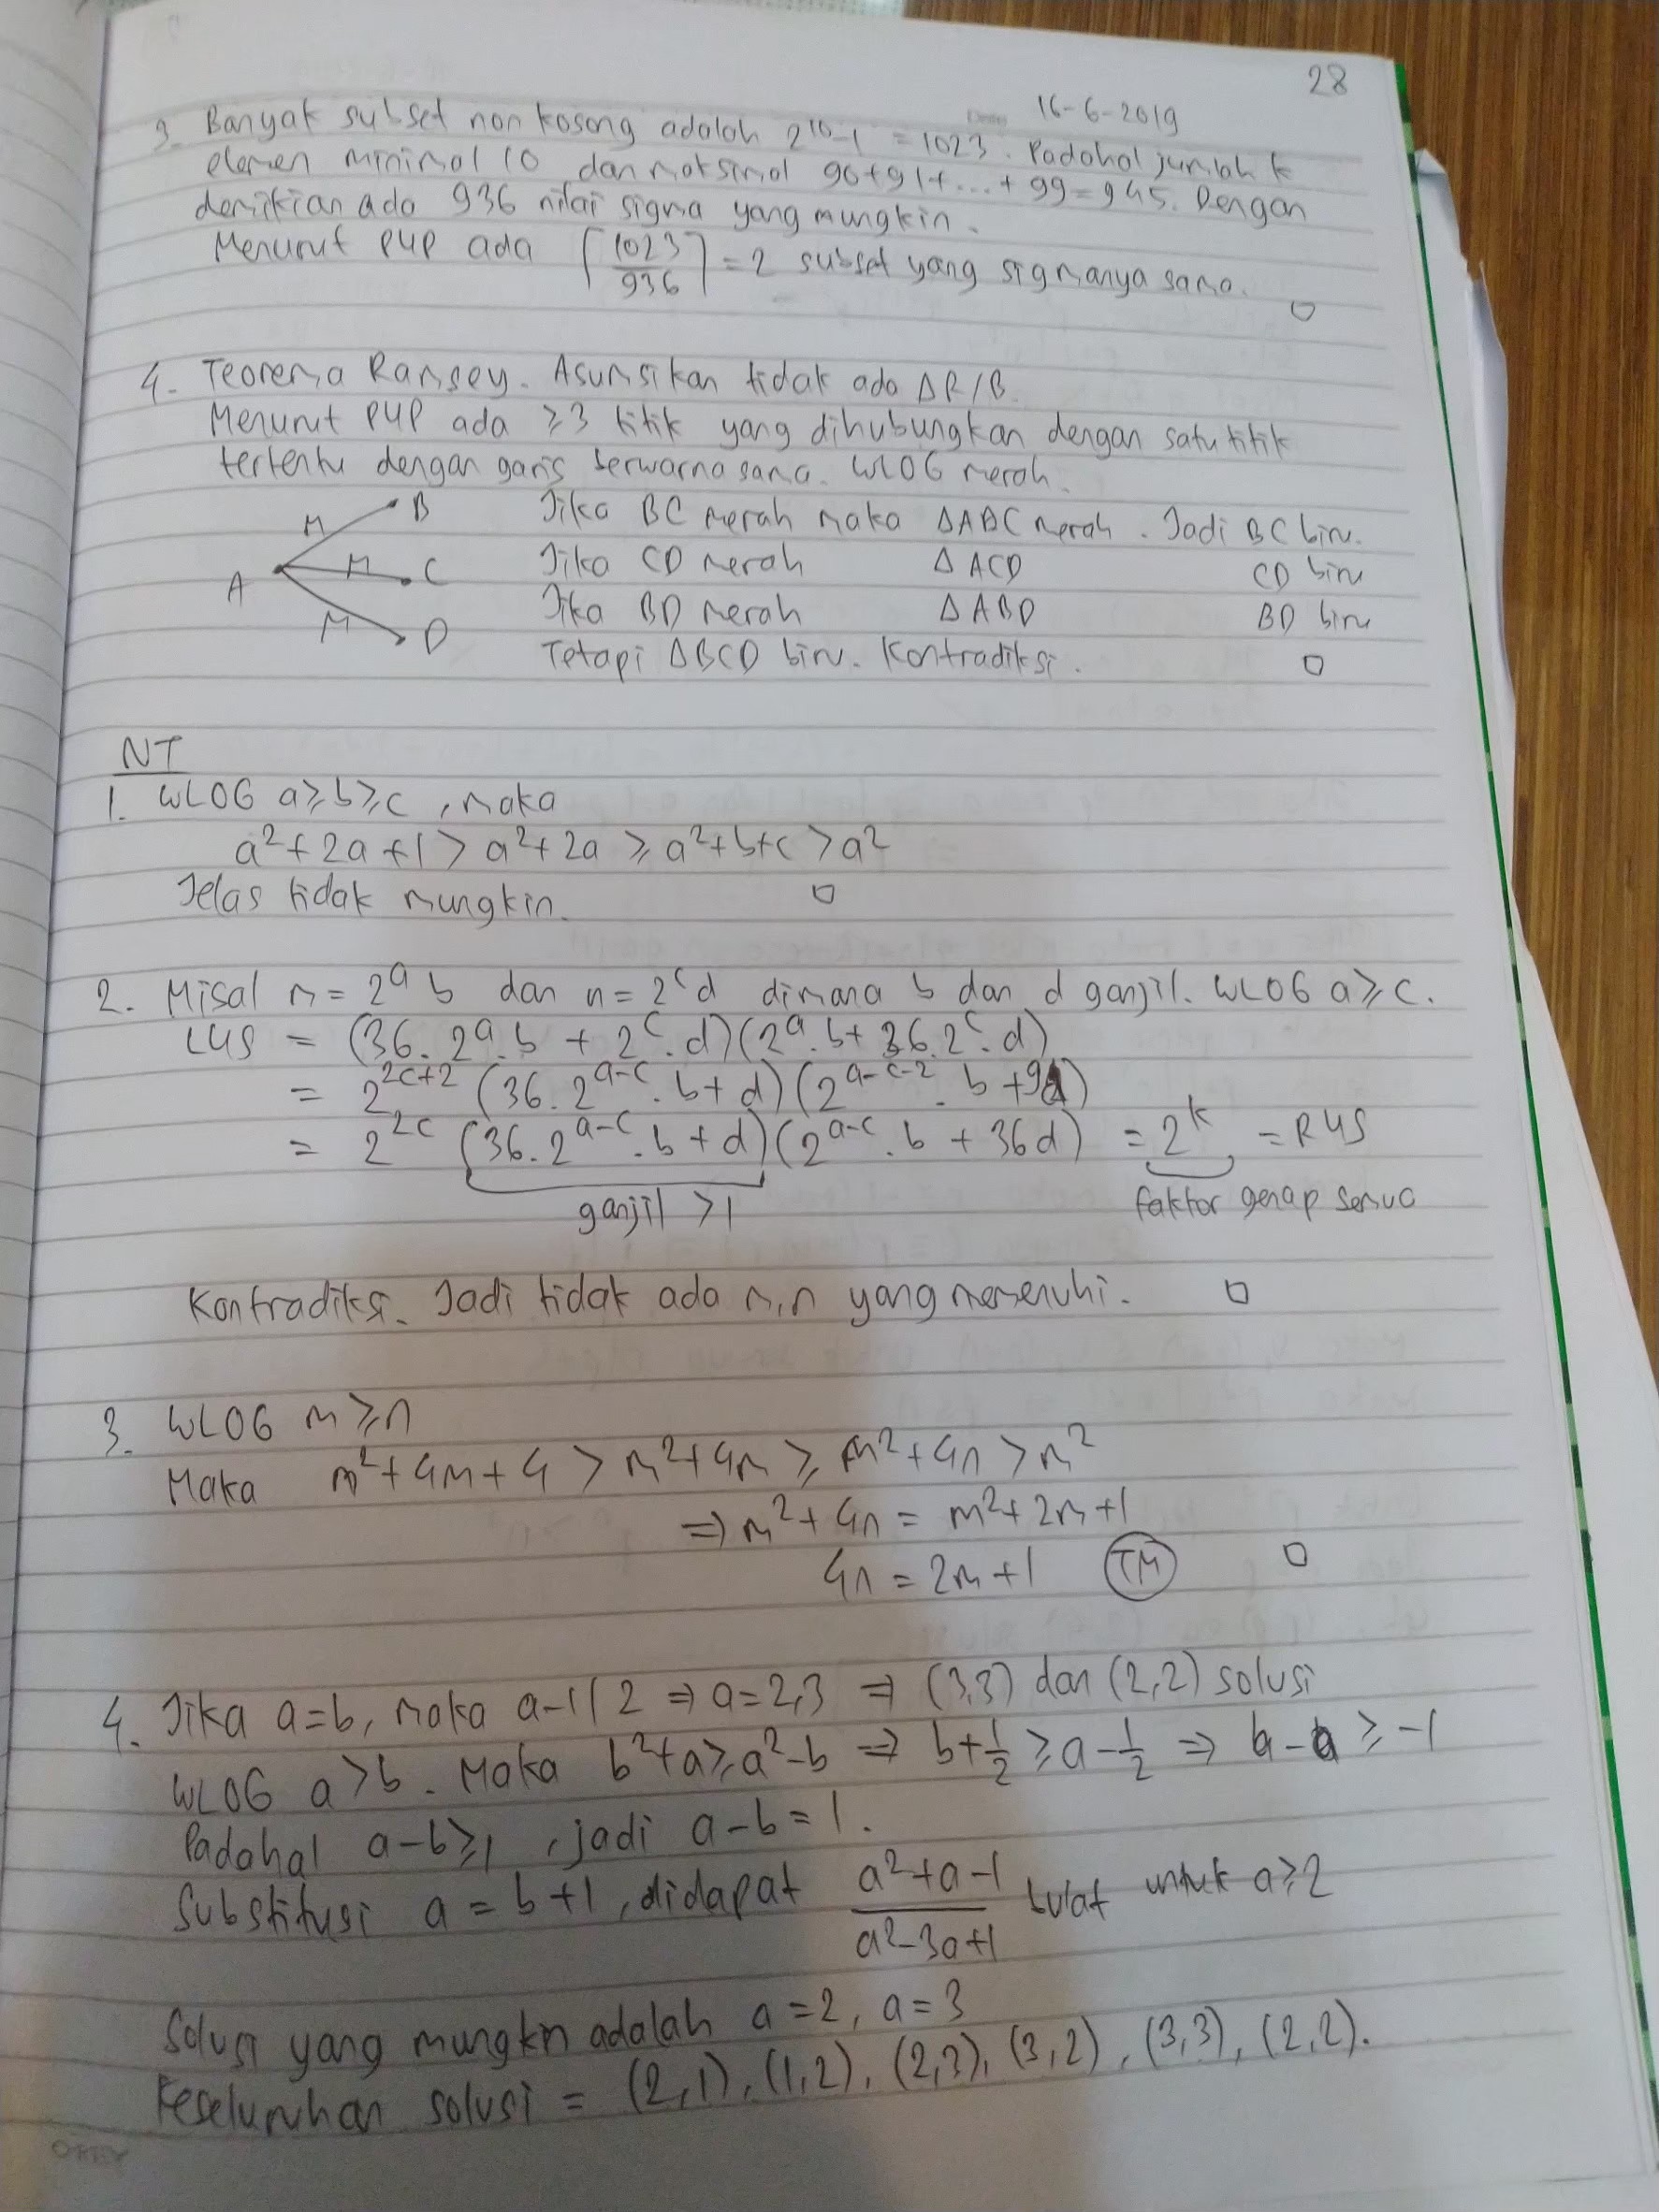 28
16-6-2019
3. Banyak subset non kosong adalah 2^10-1 = 1023. Padahal jumlah k
elemen minimal 10 dan maksimal 90+91+...+99=945. Dengan
demikian ada 936 nilai sigma yang mungkin.
Menurut PHP ada ⌈1023/936⌉ = 2 subset yang sigmanya sama. □
4. Teorema Ramsey. Asumsikan tidak ada ΔR/B.
Menurut PHP ada ≥3 titik yang dihubungkan dengan satu titik
tertentu dengan garis berwarna sama. WLOG merah.
A M B M C M D
Jika BC merah maka ΔABC merah. Jadi BC biru.
Jika CD merah ΔACD CD biru
Jika BD merah ΔABD BD biru
Tetapi ΔBCD biru. Kontradiksi. □
NT
1. WLOG a≥b≥c, maka
a²+2a+1 > a²+2a ≥ a²+b+c > a²
Jelas tidak mungkin. □
2. Misal m = 2^a b dan n = 2^c d dimana b dan d ganjil. WLOG a≥c.
LHS = (36.2^a.b + 2^c.d)(2^a.b + 36.2^c.d)
= 2^(2c+2) (36.2^(a-c).b+d)(2^(a-c-2).b+9d)
= 2^(2c) (36.2^(a-c).b+d)(2^(a-c).b+36d) = 2^k = RHS
ganjil >1 faktor genap semua
Kontradiksi. Jadi tidak ada m,n yang memenuhi. □
3. WLOG m≥n
Maka m²+4m+4 > m²+4m ≥ m²+4n > m²
⇒ m²+4n = m²+2m+1
4n = 2m+1 TM □
4. Jika a=b, maka a-1|2 ⇒ a=2,3 ⇒ (3,3) dan (2,2) solusi
WLOG a>b. Maka b²+a≥a²-b ⇒ b+1/2 ≥ a-1/2 ⇒ b-a ≥ -1
Padahal a-b≥1, jadi a-b=1.
Substitusi a = b+1, didapat (a²+a-1)/(a²-3a+1) bulat untuk a≥2
Solusi yang mungkin adalah a=2, a=3
Keseluruhan solusi = (2,1), (1,2), (2,3), (3,2), (3,3), (2,2).